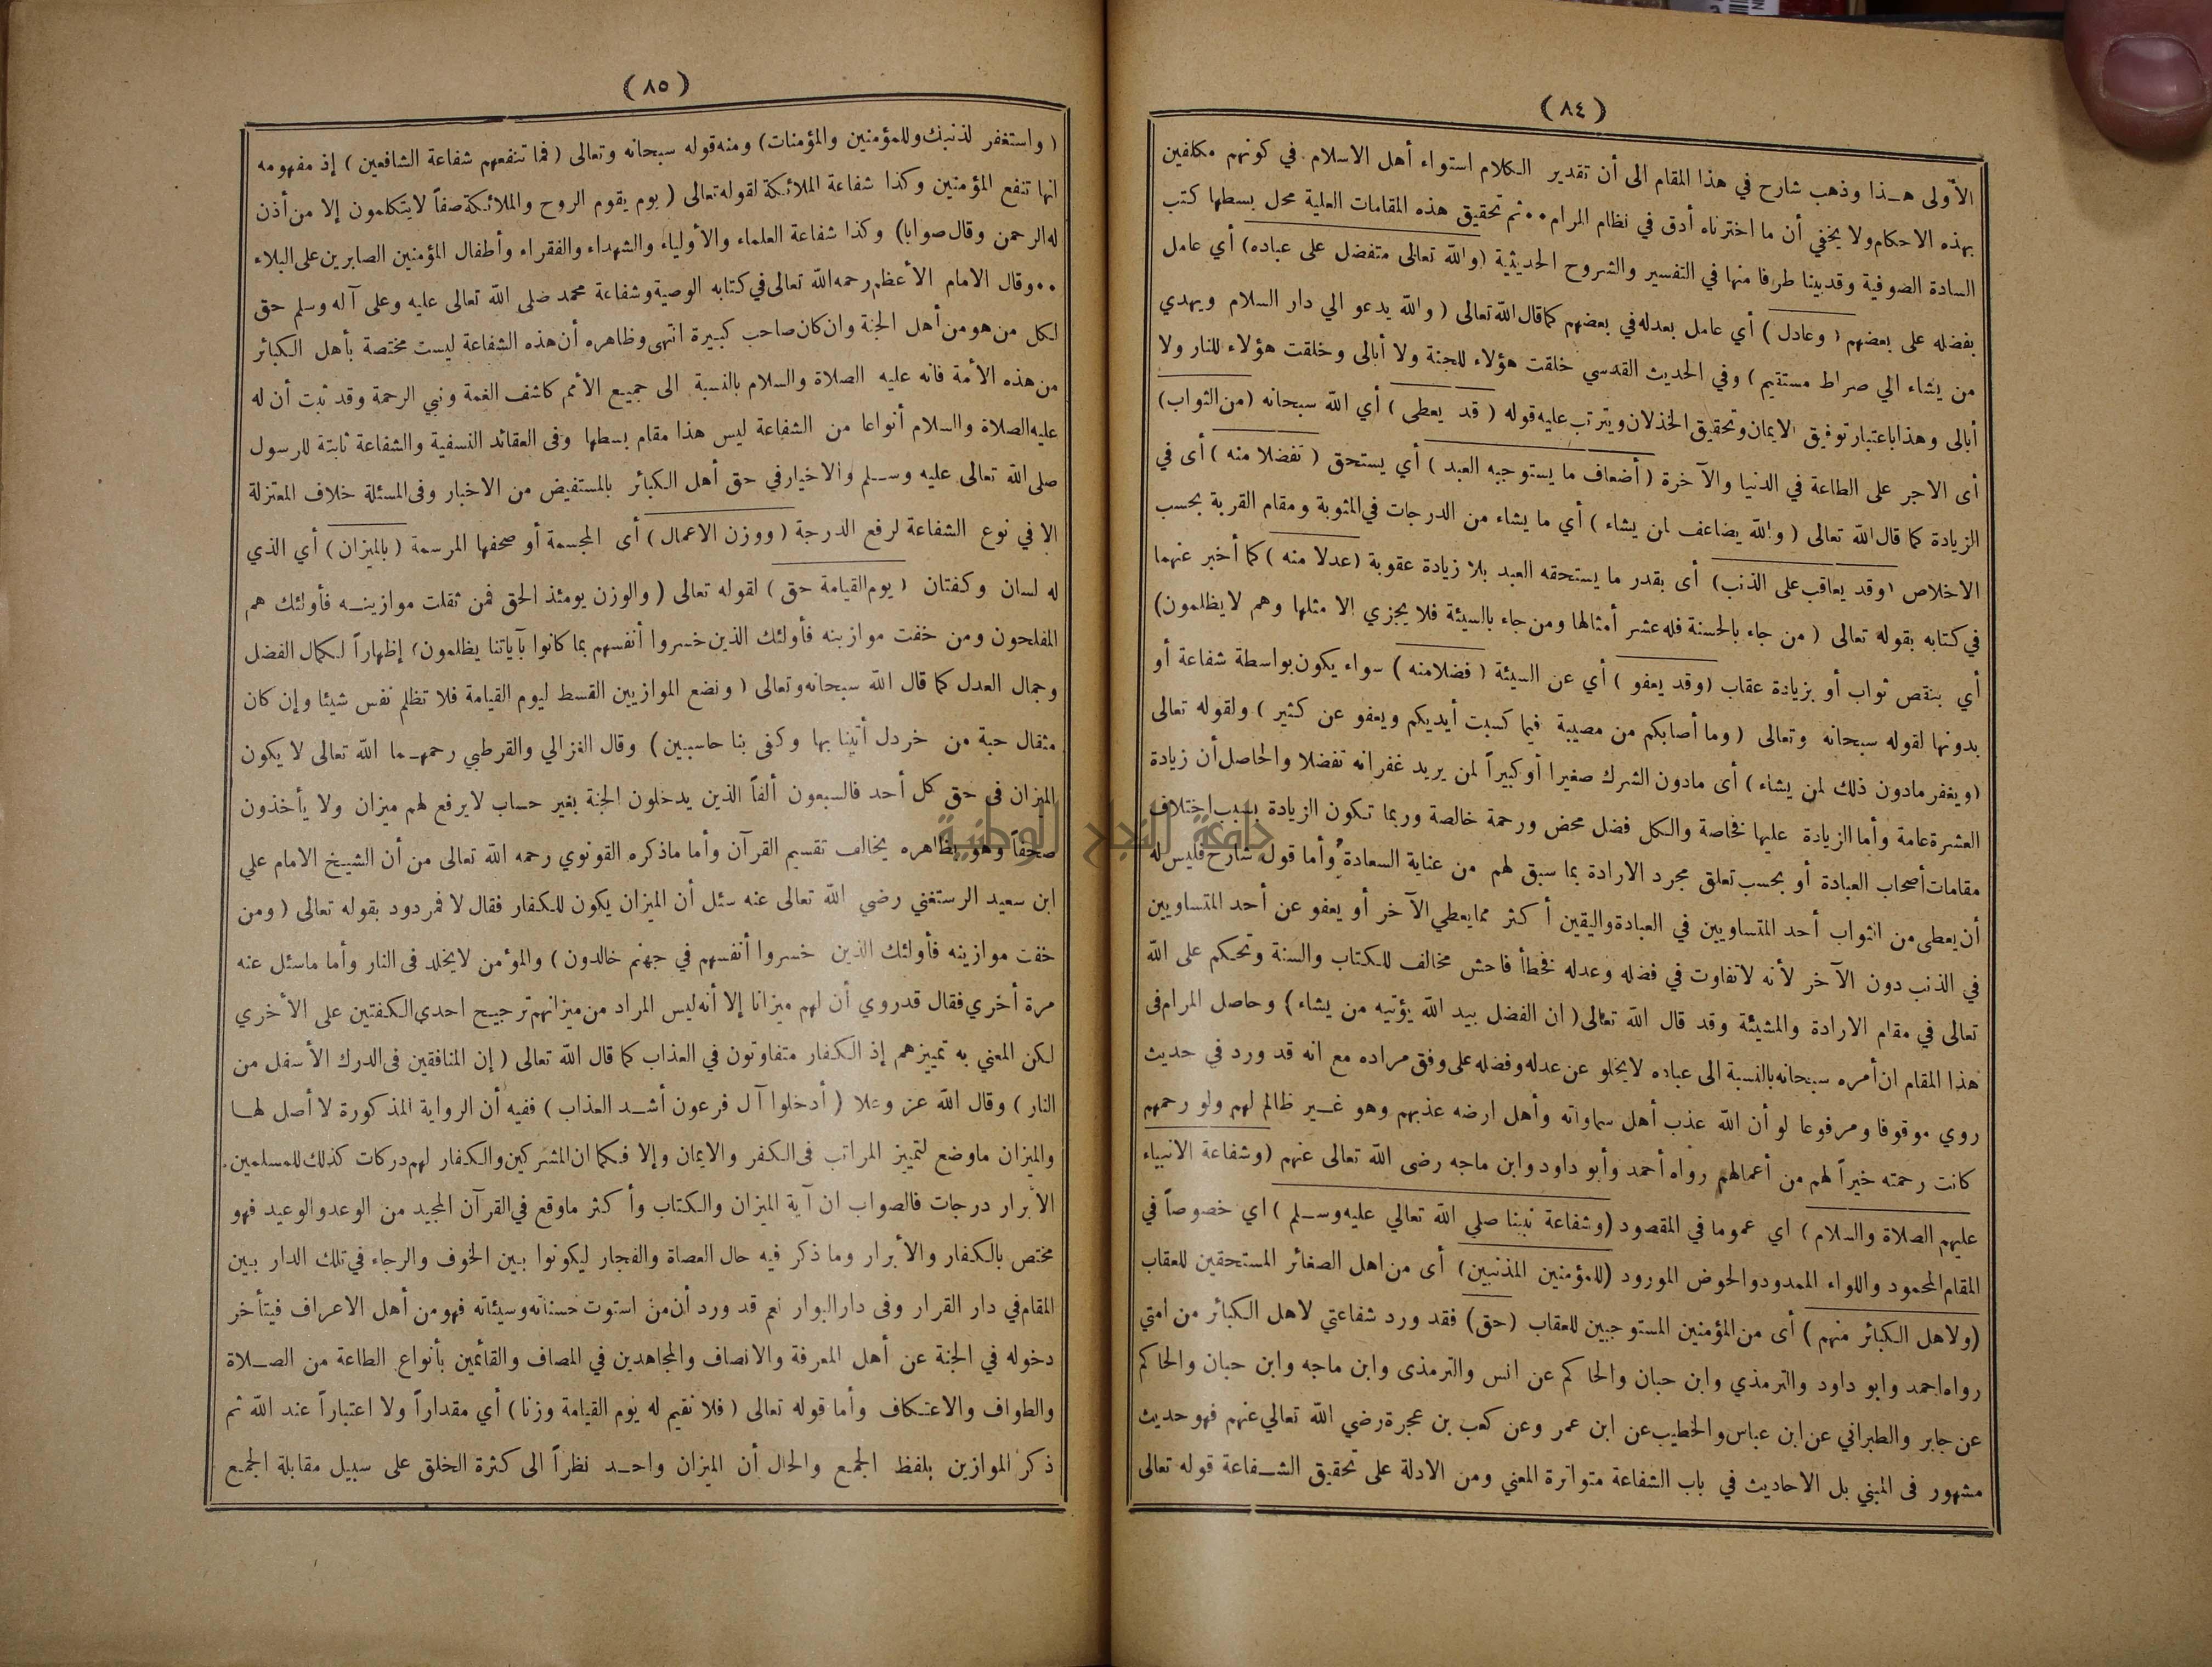 (٨٤)
الأولى هـذا وذهب شارح في هذا المقام الى أن تقدير الكلام استواء أهل الاسلام في كونهم مكلفين
بهذه الاحكام ولا يخفي أن ما اخترناه أدق في نظام المرام ٠٠ ثم تحقيق هذه المقامات العلية محل بسطها كتب
السادة الصوفية وقد بينا طرفا منها في التفسير والشروح الحديثية (والله تعالى متفضل على عباده) أي عامل
بفضله على بعضهم (وعادل) أي عامل بعدله في بعضهم كما قال الله تعالى (والله يدعو الي دار السلام ويهدي
من يشاء الي صراط مستقيم) وفي الحديث القدسي خلقت هؤلاء للجنة ولا أبالى وخلقت هؤلاء للنار ولا
أبالى وهذا باعتبار توفيق الايمان وتحقيق الخذلان ويترتب عليه قوله (قد يعطى) أي الله سبحانه (من الثواب)
أى الاجر على الطاعة في الدنيا والآخرة (أضعاف ما يستوجبه العبد) أي يستحق (تفضلا منه) أى في
الزيادة كما قال الله تعالى (والله يضاعف لمن يشاء) أي ما يشاء من الدرجات في المثوبة ومقام القربة بحسب
الاخلاص (وقد يعاقب على الذنب) أى بقدر ما يستحقه العبد بلا زيادة عقوبة (عدلا منه) كما أخبر عنهما
في كتابه بقوله تعالى (من جاء بالحسنة فله عشر أمثالها ومن جاء بالسيئة فلا يجزي الا مثلها وهم لا يظلمون)
أي بنقص ثواب أو بزيادة عقاب (وقد يعفو) أي عن السيئة (فضلا منه) سواء يكون بواسطة شفاعة أو
بدونها لقوله سبحانه وتعالى (وما أصابكم من مصيبة فيما كسبت أيديكم ويعفو عن كثير) ولقوله تعالى
(ويغفر مادون ذلك لمن يشاء) أى مادون الشرك صغيرا أو كبيراً لمن يريد غفرانه تفضلا والحاصل أن زيادة
العشرة عامة وأما الزيادة عليها فخاصة والكل فضل محض ورحمة خالصة وربما تكون الزيادة بسبب اختلاف
مقامات أصحاب العبادة أو بحسب تعلق مجرد الارادة بما سبق لهم من عناية السعادة وأما قول شارح فليس له
أن يعطى من الثواب أحد المتساويين في العبادة واليقين أكثر مما يعطي الآخر أو يعفو عن أحد المتساويين
في الذنب دون الآخر لأنه لاتفاوت في فضله وعدله فخطأ فاحش مخالف للكتاب والسنة وتحكم على الله
تعالى في مقام الارادة والمشيئة وقد قال الله تعالى (ان الفضل بيد الله يؤتيه من يشاء) وحاصل المرام فى
هذا المقام ان أمره سبحانه بالنسبة الى عباده لا يخلو عن عدله وفضله على وفق مراده مع انه قد ورد في حديث
روي موقوفا ومرفوعا لو أن الله عذب أهل سماواته وأهل ارضه عذبهم وهو غـير ظالم لهم ولو رحمهم
كانت رحمته خيراً لهم من أعمالهم رواه أحمد وأبو داود وابن ماجه رضى الله تعالى عنهم (وشفاعة الانبياء
عليهم الصلاة والسلام) اي عموما في المقصود (وشفاعة نبينا صلي الله تعالي عليه وسـلم) اي خصوصاً في
المقام المحمود واللواء الممدود والحوض المورود (للمؤمنين المذنبين) أى من اهل الصغائر المستحقين للعقاب
(ولاهل الكبائر منهم) أى من المؤمنين المستوجبين للعقاب (حق) فقد ورد شفاعتي لاهل الكبائر من امتي
رواه احمد وابو داود والترمذي وابن حبان والحاكم عن انس والترمذى وابن ماجه وابن حبان والحاكم
عن جابر والطبراني عن ابن عباس والخطيب عن ابن عمر وعن كعب بن عجرة رضي الله تعالي عنهم فهو حديث
مشهور فى المبني بل الاحاديث في باب الشفاعة متواترة المعني ومن الادلة على تحقيق الشـفاعة قوله تعالى
(٨٥)
(واستغفر لذنبك وللمؤمنين والمؤمنات) ومنه قوله سبحانه وتعالى (فما تنفعهم شفاعة الشافعين) إذ مفهومه
انها تنفع المؤمنين وكذا شفاعة الملائكة لقوله تعالى (يوم يقوم الروح والملائكة صفاً لا يتكلمون إلا من أذن
له الرحمن وقال صوابا) وكذا شفاعة العلماء والأولياء والشهداء والفقراء وأطفال المؤمنين الصابرين على البلاء
٠٠ وقال الامام الأعظم رحمه الله تعالى في كتابه الوصية وشفاعة محمد صلى الله تعالى عليه وعلى آله وسلم حق
لكل من هو من أهل الجنة وان كان صاحب كبيرة انتهى وظاهره أن هذه الشفاعة ليست مختصة بأهل الكبائر
من هذه الأمة فانه عليه الصلاة والسلام بالنسبة الى جميع الأمم كاشف الغمة ونبي الرحمة وقد ثبت أن له
عليه الصلاة والسلام أنواعا من الشفاعة ليس هذا مقام بسطها وفى العقائد النسفية والشفاعة ثابتة للرسول
صلى الله تعالى عليه وسـلم والاخيار في حق أهل الكبائر بالمستفيض من الاخبار وفى المسئلة خلاف المعتزلة
الا في نوع الشفاعة لرفع الدرجة (ووزن الاعمال) أى المجسمة أو صحفها المرسمة (بالميزان) أي الذي
له لسان وكفتان (يوم القيامة حق) لقوله تعالى (والوزن يومئذ الحق فمن ثقلت موازينـه فأولئك هم
المفلحون ومن خفت موازينه فأولئك الذين خسروا أنفسهم بما كانوا بآياتنا يظلمون) إظهاراً لكمال الفضل
وجمال العدل كما قال الله سبحانه وتعالى (ونضع الموازين القسط ليوم القيامة فلا تظلم نفس شيئا وإن كان
مثقال حبة من خردل أتينا بها وكفى بنا حاسبين) وقال الغزالي والقرطبي رحمهـما الله تعالى لا يكون
الميزان فى حق كل أحد فالسبعون ألفاً الذين يدخلون الجنة بغير حساب لا يرفع لهم ميزان ولا يأخذون
صحفاً وهو بظاهره يخالف تقسيم القرآن وأما ماذكره القونوي رحمه الله تعالى من أن الشيخ الامام علي
ابن سعيد الرستغني رضي الله تعالى عنه سئل أن الميزان يكون للكفار فقال لا فمردود بقوله تعالى (ومن
خفت موازينه فأولئك الذين خسروا أنفسهم في جهنم خالدون) والمؤمن لا يخلد فى النار وأما ماسئل عنه
مرة أخري فقال قد روي أن لهم ميزانا إلا أنه ليس المراد من ميزانهم ترجيح احدي الكفتين على الأخري
لكن المعني به تمييزهم إذ الكفار متفاوتون في العذاب كما قال الله تعالى (إن المنافقين فى الدرك الأسفل من
النار) وقال الله عز وعلا (أدخلوا آل فرعون أشـد العذاب) ففيه أن الرواية المذكورة لا أصل لهـا
والميزان ماوضع لتمييز المراتب فى الكفر والايمان وإلا فكما ان المشركين والكفار لهم دركات كذلك للمسلمين
الأبرار درجات فالصواب ان آية الميزان والكتاب وأكثر ماوقع في القرآن المجيد من الوعد والوعيد فهو
مختص بالكفار والأبرار وما ذكر فيه حال العصاة والفجار ليكونوا بين الخوف والرجاء في تلك الدار بين
المقام في دار القرار وفى دار البوار نعم قد ورد أن من استوت حسناته وسيئاته فهو من أهل الاعراف فيتأخر
دخوله في الجنة عن أهل المعرفة والانصاف والمجاهدين في المصاف والقائمين بأنواع الطاعة من الصـلاة
والطواف والاعتكاف وأما قوله تعالى (فلا نقيم له يوم القيامة وزنا) أي مقداراً ولا اعتباراً عند الله ثم
ذكر الموازين بلفظ الجمع والحال أن الميزان واحـد نظراً الى كثرة الخلق على سبيل مقابلة الجمع
جامعة النجاح الوطنية